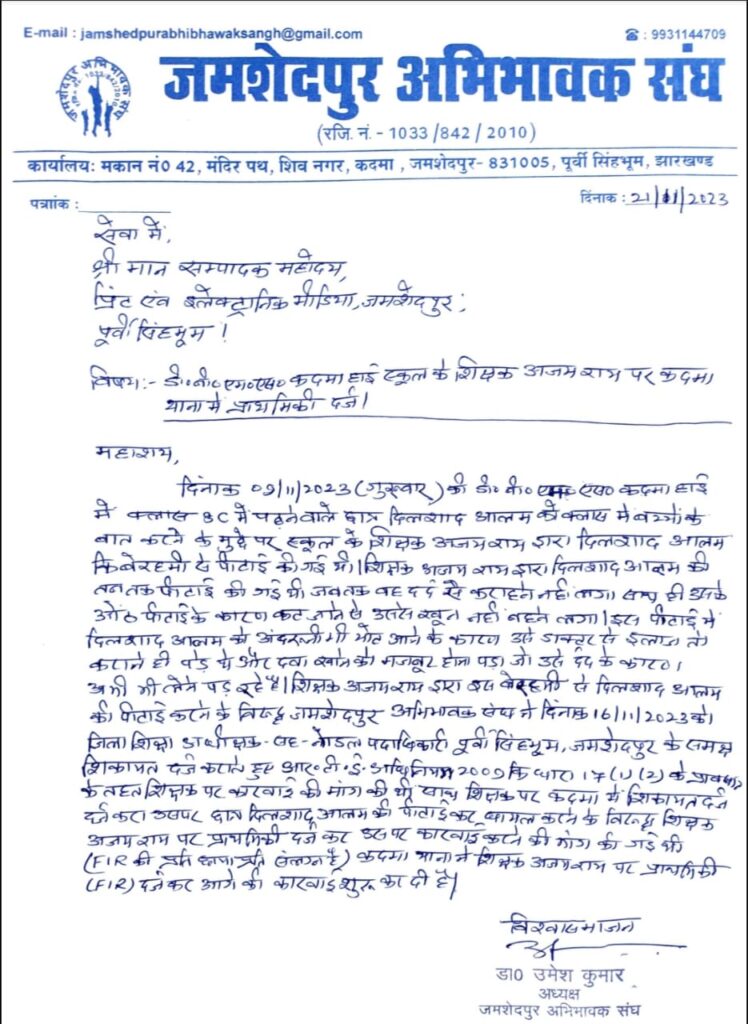 E-mail : jamshedpurabhibhawaksangh@gmail.com
☎ : 9931144709
जमशेदपुर अभिभावक संघ
(रजि. नं. - 1033/842/2010)
कार्यालय: मकान नं0 42, मंदिर पथ, शिव नगर, कदमा , जमशेदपुर- 831005, पूर्वी सिंहभूम, झारखण्ड
पत्राांक :
दिनांक : 21/11/2023
सेवा में,
श्री मान सम्पादक महोदय,
प्रिंट एंव इलेक्ट्रानिक मीडिया, जमशेदपुर,
पूर्वी सिंहभूम !
विषय:- डी०बी०एम०एस० कदमा हाई स्कूल के शिक्षक अजय राय पर कदमा
थाना मे प्राथमिकी दर्ज।
महाशय,
दिनांक 09/11/2023 (गुरूवार) को डी० बी० एम० एस० कदमा हाई
मे क्लास 8C में पढ़ने वाले छात्र दिलशाद आलम को क्लास मे बच्चो के
बात करने के मुद्दे पर स्कूल के शिक्षक अजय राय द्वारा दिलशाद आलम
कि बेरहमी से पीटाई की गई थी। शिक्षक अजय राय द्वारा दिलशाद आलम की
तबतक पीटाई की गई थी जबतक वह दर्द से कराहने नहीं लगा। साथ ही उसके
ओठ पीटाई के कारण कट जाने से उससे खून नहीं बहने लगा। इस पीटाई मे
दिलशाद आलम को अंदरूनी भी चोट आने के कारण उसे डाक्टर से ईलाज तो
कराने ही पड़े थे और दवा खाने को मजबूर होना पड़ा जो उसे दर्द के कारण
अभी भी लेने पड़ रहे है। शिक्षक अजय राय द्वारा इस बेरहमी से दिलशाद आलम
की पीटाई करने के विरूद्ध जमशेदपुर अभिभावक संघ ने दिनांक 16/11/2023 को
जिला शिक्षा अधीक्षक-सह-नोडल पदाधिकारी पूर्वी सिंहभूम, जमशेदपुर के समक्ष
शिकायत दर्ज कराते हुए आर०टी०ई० अधिनियम 2009 कि धारा 17 (1) (2) के प्रावधान
के तहत शिक्षक पर कारवाई की मांग की थी साथ शिक्षक पर कदमा मे शिकायत दर्ज
दर्ज करा उसपर छात्र दिलशाद आलम की पीटाई कर घायल करने के विरूद्ध शिक्षक
अजय राय पर प्राथमिकी दर्ज कर उस पर कारवाई करने की मांग की गई थी
(FIR की प्रति छायाप्रति संलग्न है) कदमा थाना ने शिक्षक अजय राय पर प्राथमिकी
(FIR) दर्ज कर आगे की कारवाई शुरू कर दी है।
विश्वासभाजन
डा0 उमेश कुमार
अध्यक्ष
जमशेदपुर अभिभावक संघ